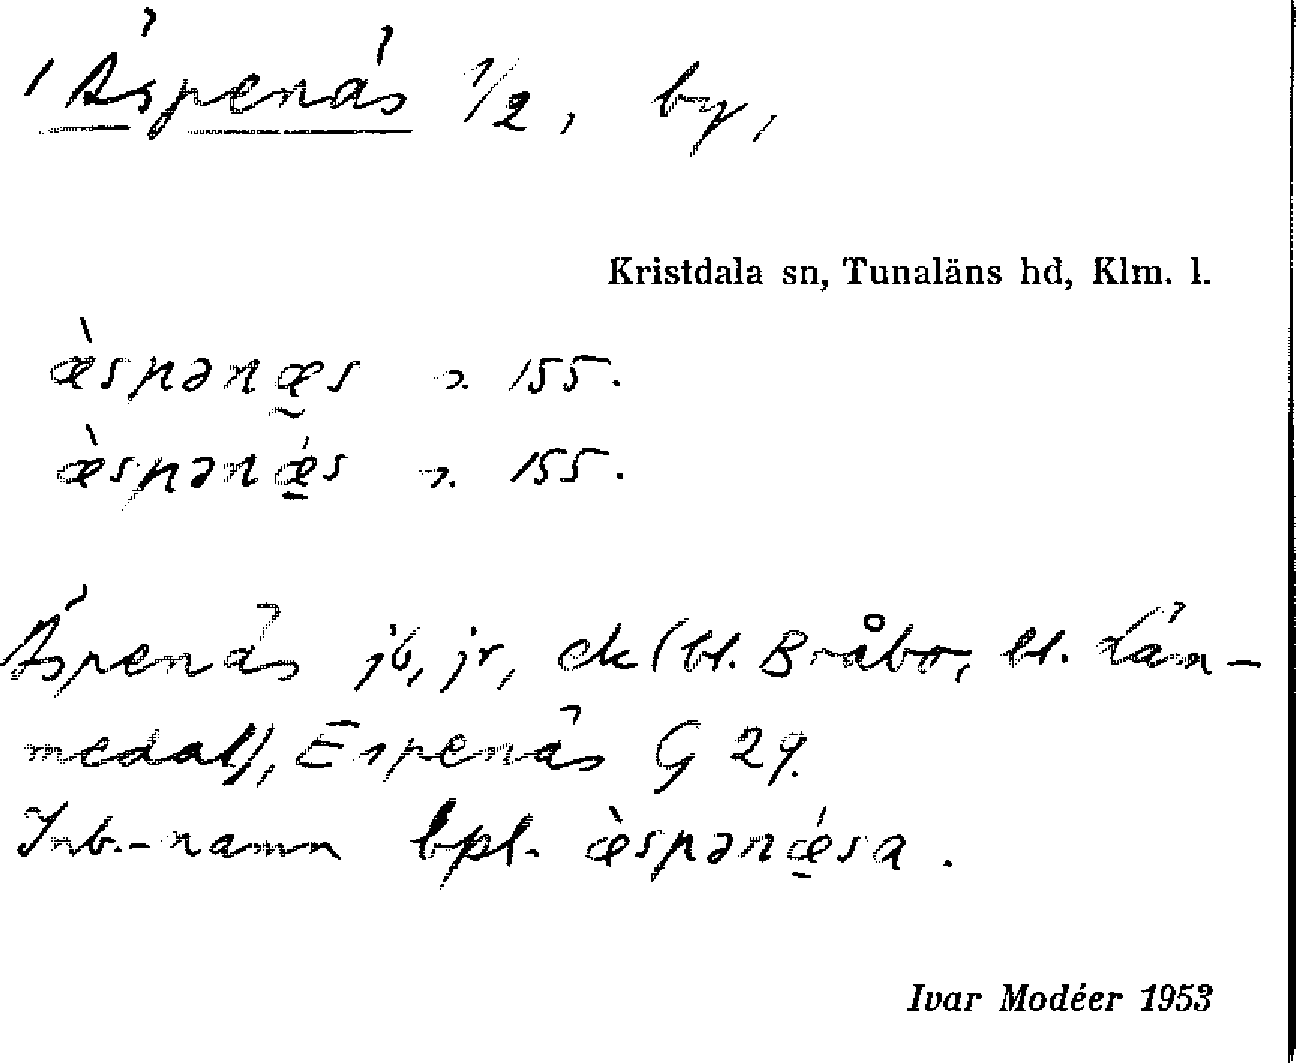 Äspenäs 1/2, by,
Kristdala sn, Tunaläns hd, Klm. l.
æ̀spənæ̰s 155.
æ̀spənǽ̠s 155.
Äspenäs jb, jr, ek (bl. Bråbo, bl. Läm-
medal), Espenäs G 29.
Inb.-namn bpl. æ̀spənǽ̠sa.
Ivar Modéer 1953